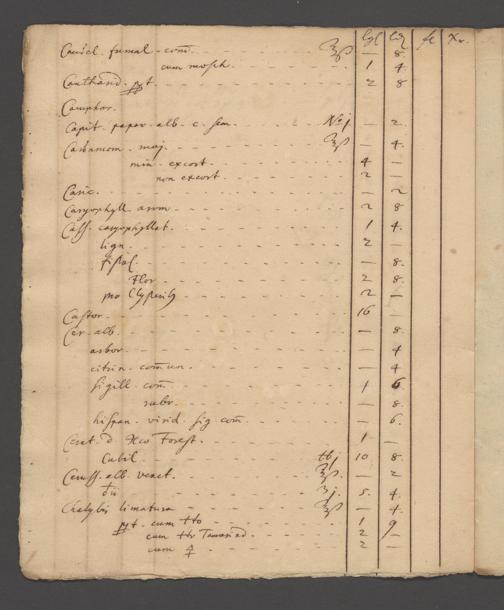 fl Xr.
Candel. fumal. com̄. ℥ß — 8
cum mosch. 1 4.
Cantharid. ppt. 2 8
Camphor.
Capit. papav. alb. c. sem. No j — 2
Cardamom. maj. ℥ß — 4.
min. excort. 4 —
non excort. 2 —
Caric. — 2
Caryophyll. arom. 2 8
Cass. caryophyllat. 1 4.
lign. 2 —
fistul. — 8.
Flor. 2 8
pro Clysterib. 2 —
Castor. 16 —
Cer. alb. — 8.
arbor. — 4
citrin. com̄un. — 4
sigill. com̄. 1 6
rubr. — 8.
hispan. virid. sig. com̄. — 6.
Cerat. Forest. 1 —
℔j 10 8.
Ceruss. alb. venet. ℥ß. — 2
℥j. 5 4.
Chalybis limatura ℥ß — 4.
ppt. cum 1 9
cum Tamarind. 2 —
cum 🜍 2 —